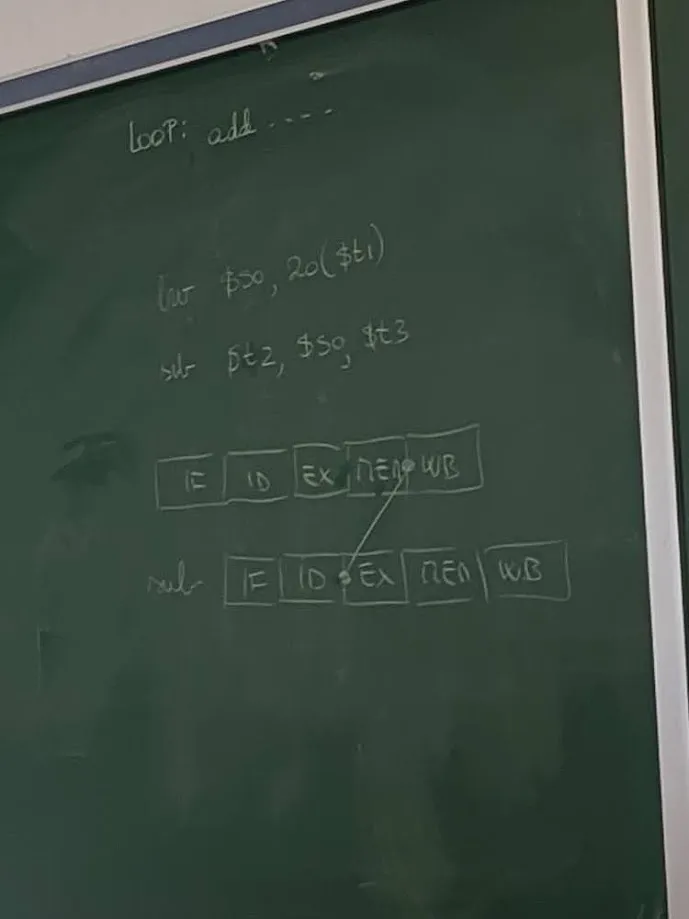 LOOP: add .....
lw $s0, 20($t1)
sub $t2, $s0, $t3
IF ID EX MEM WB
sub IF ID EX MEM WB